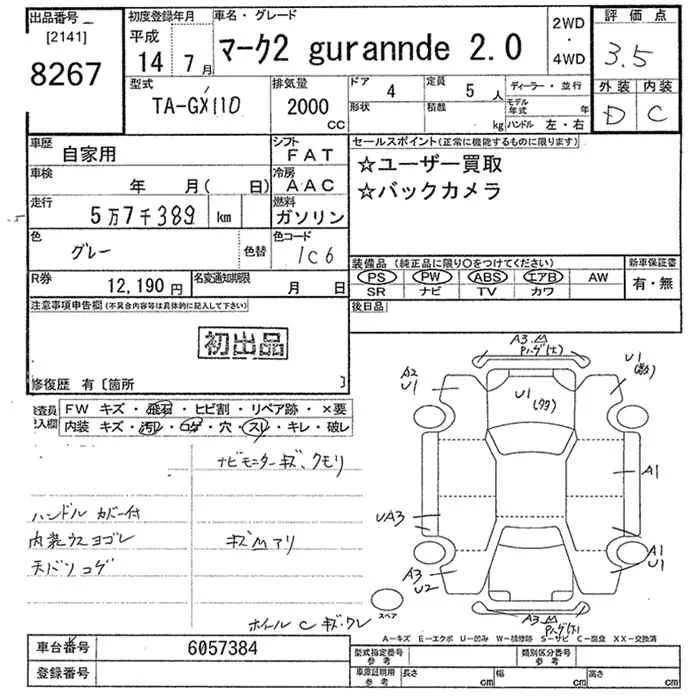 出品番号
[2141]
8267
初度登録年月
平成
14 年 7 月
車名・グレード
マーク2 gurannde 2.0
2WD
・
4WD
評価点
3.5
外装 内装
D C
型式
TA-GX110
排気量
2000
CC
ドア 4
定員 5 人
形状
積載 kg
ディーラー・並行
モデル年式 年
ハンドル 左・右
車歴 自家用
シフト FAT
車検 年 月( 日)
冷房 AAC
走行 5万7千389 km
燃料 ガソリン
色 グレー 色替
色コード 1C6
R券 12,190 円
名変通知期限 月 日
セールスポイント(正常に機能するものに限ります)
☆ユーザー買取
☆バックカメラ
装備品(純正品に限り○をつけてください)
PS PW ABS エアB AW
SR ナビ TV カワ
新車保証書
有・無
後日品
注意事項申告欄(不具合内容等は具体的に記入して下さい)
初出品
修復歴 有〔箇所 〕
検査員記入欄
FW キズ・飛石・ヒビ割・リペア跡・×要
内装 キズ・汚レ・コゲ・穴・スレ・キレ・破レ
ナビモニターキズ、クモリ
ハンドル カバー付
内装ウスヨゴレ
キズMアリ
天バリコゲ
ホイールCキズ・クレ
A3.
A2
U1
U1
U1
A1
UA3
A1
U1
A3
U2
A3.
スペア
A-キズ E-エクボ U-凹み W-補修跡 S-サビ C-腐食 XX-交換済
車台番号 6057384
登録番号
型式指定番号
参考
類別区分番号
参考
車庫証明用
参考
長さ cm
幅 cm
高さ cm